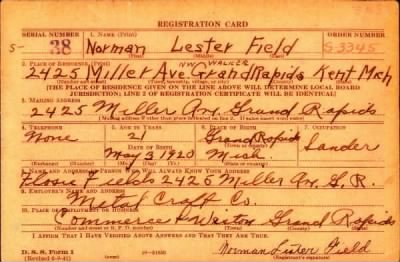 REGISTRATION CARD
SERIAL NUMBER 1. NAME (Print) ORDER NUMBER
S- 38 Norman Lester Field S-3345
(First) (Middle) (Last)
2. PLACE OF RESIDENCE (Print) NW WALKER
2425 Miller Ave Grand Rapids Kent Mich
[THE PLACE OF RESIDENCE GIVEN ON THE LINE ABOVE WILL DETERMINE LOCAL BOARD
JURISDICTION; LINE 2 OF REGISTRATION CERTIFICATE WILL BE IDENTICAL]
3. MAILING ADDRESS
2425 Miller Av. Grand Rapids
[Mailing address if other than place indicated on line 2. If same insert word same]
4. TELEPHONE 5. AGE IN YEARS 6. PLACE OF BIRTH 7. OCCUPATION
None 21 Grand Rapids Sander
DATE OF BIRTH (Town or county)
May 3 1920 Mich.
(Exchange) (Number) (Mo.) (Day) (Yr.) (State or country)
NAME AND ADDRESS OF PERSON WHO WILL ALWAYS KNOW YOUR ADDRESS
Fields 2425 Miller Av. G. R.
9. EMPLOYER'S NAME AND ADDRESS
Metal Craft Co.
10. PLACE OF EMPLOYMENT OR BUSINESS
Commerce & Weston Grand Rapids
I AFFIRM THAT I HAVE VERIFIED ABOVE ANSWERS AND THAT THEY ARE TRUE.
D. S. S. Form 1 Norman Lester Field
(Revised 6-9-41)